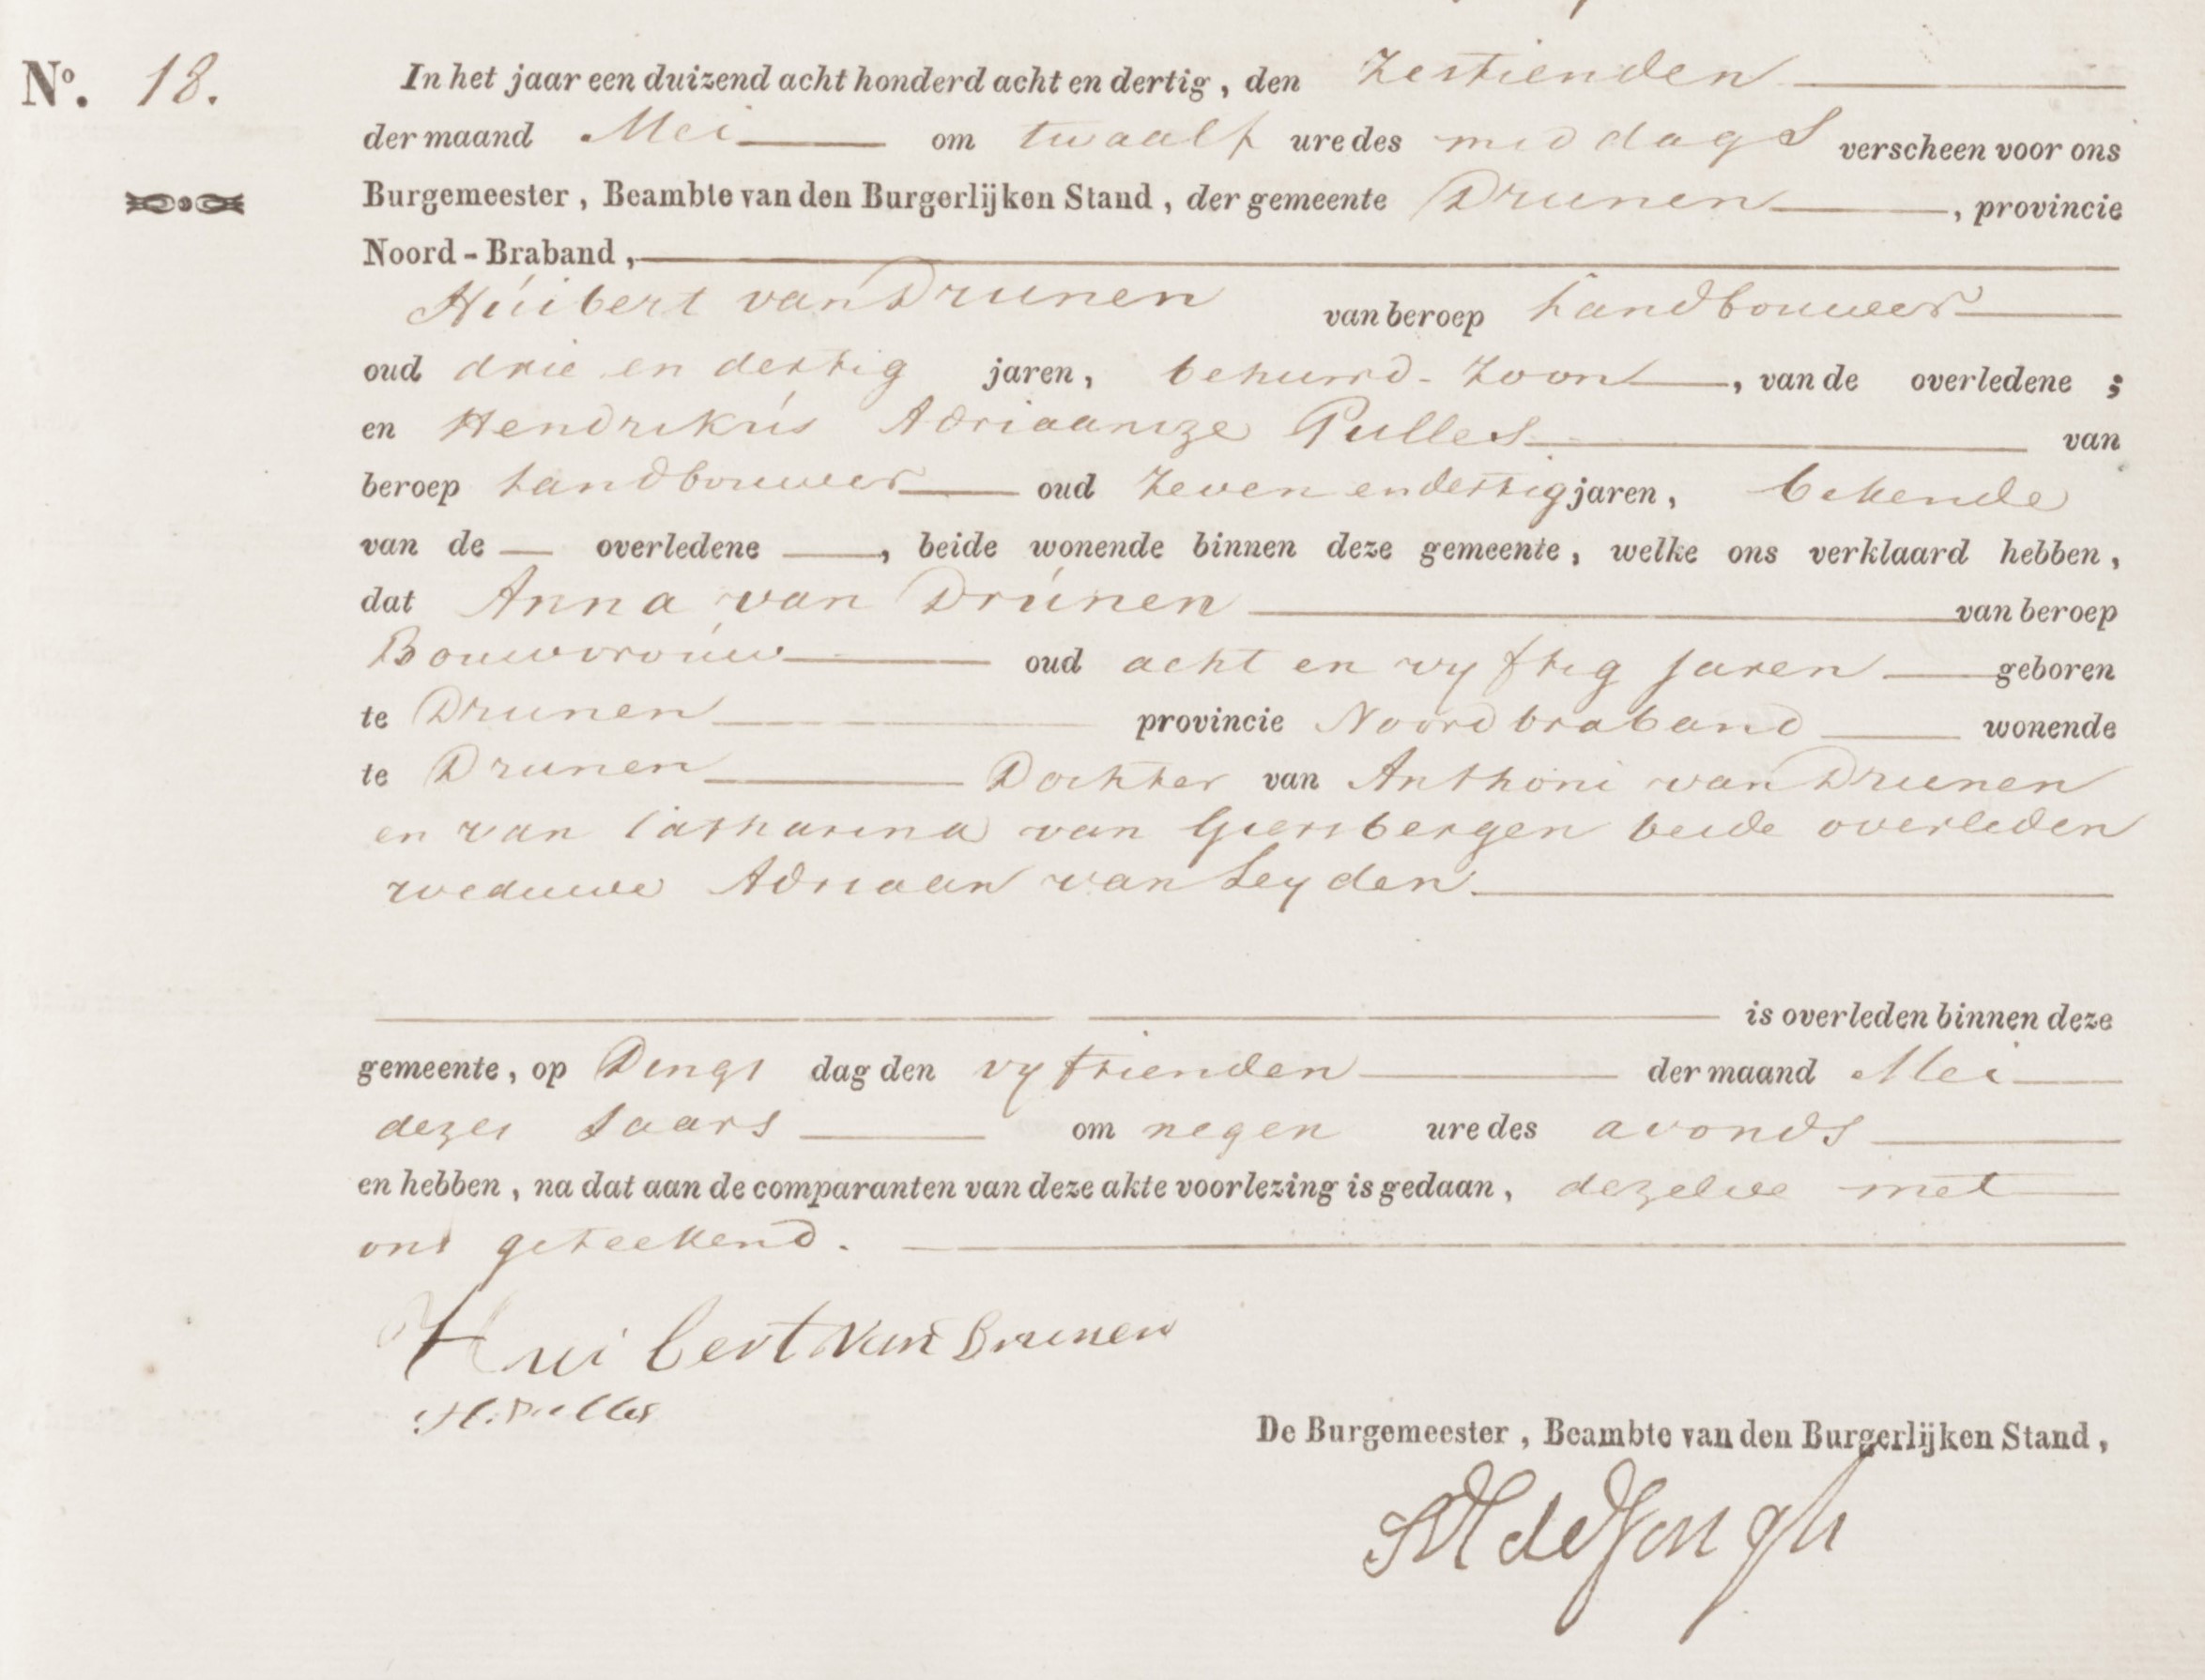 Nº. 18.
In het jaar een duizend acht honderd acht en dertig, den Zestienden
der maand Mei om twaalf ure des middags verscheen voor ons
Burgemeester, Beambte van den Burgerlijken Stand, der gemeente Drunen, provincie
Noord-Braband,
Huibert van Drunen van beroep Landbouwer
oud drie en dertig jaren, behuwd-Zoon, van de overledene;
en Hendrikus Adriaansze Pulles van
beroep Landbouwer oud Zeven en dertig jaren, bekende
van de overledene, beide wonende binnen deze gemeente, welke ons verklaard hebben,
dat Anna van Drunen van beroep
Bouwvrouw oud acht en vyftig Jaren geboren
te Drunen provincie Noordbraband wonende
te Drunen Dochter van Anthoni van Drunen
en van Catharina van Giersbergen beide overleden
weduwe Adriaan van Leyden
is overleden binnen deze
gemeente, op Dings dag den vyftienden der maand Mei
dezes Jaars om negen ure des avonds
en hebben, na dat aan de comparanten van deze akte voorlezing is gedaan, dezelve met
ons geteekend.
Huibert van Drunen
H. Pulles
De Burgemeester, Beambte van den Burgerlijken Stand,
de Jongh